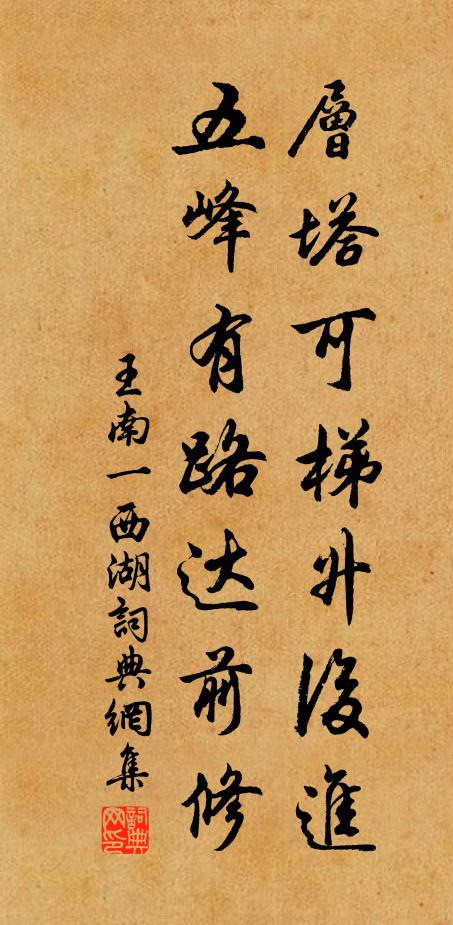 層塔可梯升後進
五峰有路达前修
王南一西湖詞典網集
詞典网印